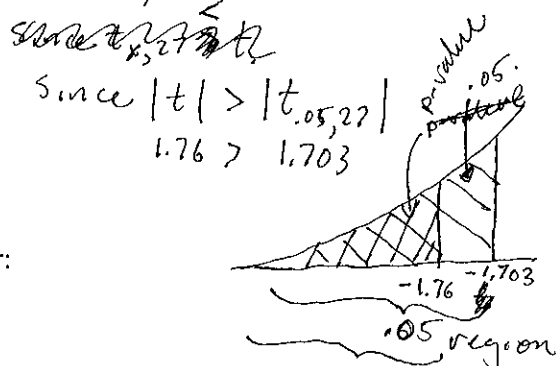 since
Since |t| > |t.05,27|
1.76 > 1.703
p-value
.05.
:
-1.76 -1.703
.05 region